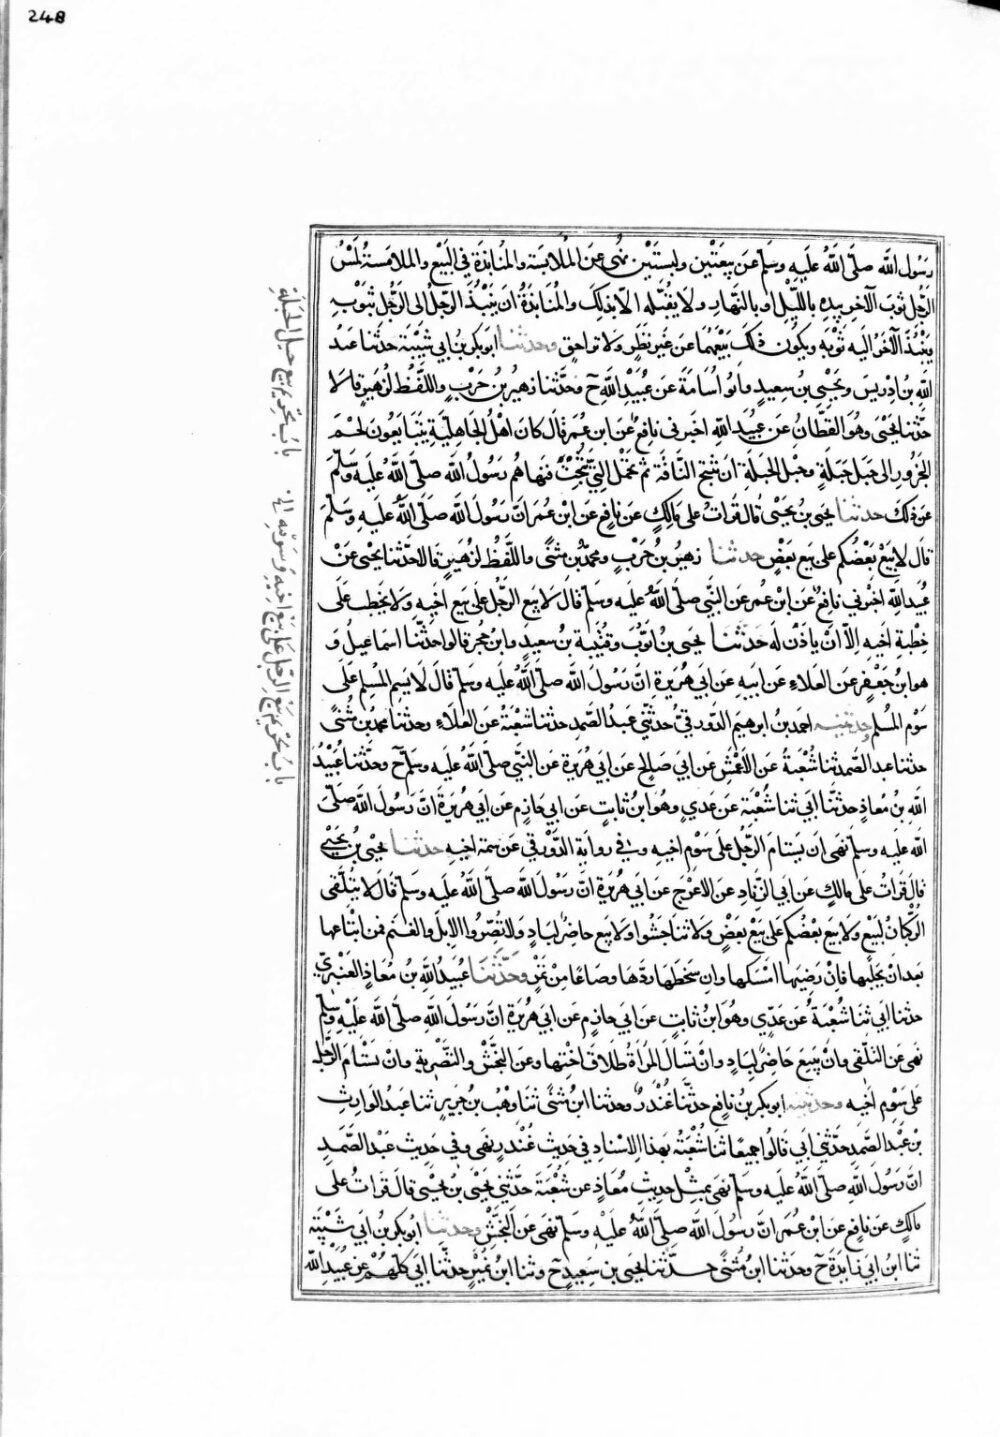 248
رسول الله صلى الله عليه وسلم عن بيعتين ولبستين نهى عن الملامسة والمنابذة في البيع والملامسة لمس
الرجل ثوب الآخر بيده بالليل او بالنهار ولا يقلبه الا بذلك والمنابذة ان ينبذ الرجل الى الرجل بثوبه
وينبذ الآخر اليه ثوبه ويكون ذلك بيعهما عن غير نظر ولا تراض وحدثنا ابو بكر بن ابي شيبة حدثنا عبد
الله بن ادريس ويحيى بن سعيد وابو اسامة عن عبيد الله ح وحدثنا زهير بن حرب واللفظ لزهير قالا
حدثنا يحيى وهو القطان عن عبيد الله اخبرني نافع عن ابن عمر قال كان اهل الجاهلية يتبايعون لحم
الجزور الى حبل حبلة وحبل الحبلة ان تنتج الناقة ثم تحمل التي نتجت فنهاهم رسول الله صلى الله عليه وسلم
عن ذلك حدثنا يحيى بن يحيى قال قرات على مالك عن نافع عن ابن عمر ان رسول الله صلى الله عليه وسلم
قال لا يبع بعضكم على بيع بعض حدثنا زهير بن حرب ومحمد بن مثنى واللفظ لزهير قالا حدثنا يحيى عن
عبيد الله اخبرني نافع عن ابن عمر عن النبي صلى الله عليه وسلم قال لا يبع الرجل على بيع اخيه ولا يخطب على
خطبة اخيه الا ان ياذن له حدثنا يحيى بن ايوب وقتيبة بن سعيد وابن حجر قالوا حدثنا اسماعيل و
هو ابن جعفر عن العلاء عن ابيه عن ابي هريرة ان رسول الله صلى الله عليه وسلم قال لا يسم المسلم على
سوم المسلم وحدثنيه احمد بن ابرهيم الدورقي حدثني عبد الصمد حدثنا شعبة عن العلاء وحدثنا محمد بن مثنى
حدثنا عبد الصمد ثنا شعبة عن الاعمش عن ابي صالح عن ابي هريرة عن النبي صلى الله عليه وسلم ح وحدثنا عبيد
الله بن معاذ حدثنا ابي ثنا شعبة عن عدي وهو ابن ثابت عن ابي حازم عن ابي هريرة ان رسول الله صلى
الله عليه وسلم نهى ان يستام الرجل على سوم اخيه وفي رواية الدورقي عن سمة اخيه حدثنا يحيى بن يحيى
قال قرات على مالك عن ابي الزناد عن الاعرج عن ابي هريرة ان رسول الله صلى الله عليه وسلم قال لا يتلقى
الركبان لبيع ولا يبع بعضكم على بيع بعض ولا تناجشوا ولا يبع حاضر لباد ولا تصروا الابل والغنم فمن ابتاعها
بعد ان يحلبها فان رضيها امسكها وان سخطها ردها وصاعا من تمر وحدثنا عبيد الله بن معاذ العنبري
حدثنا ابي ثنا شعبة عن عدي وهو ابن ثابت عن ابي حازم عن ابي هريرة ان رسول الله صلى الله عليه وسلم
نهى عن التلقي وان يبيع حاضر لباد وان تسال المراة طلاق اختها وعن النجش والتصرية وان يستام الرجل
على سوم اخيه وحدثنيه ابو بكر بن نافع حدثنا غندر وحدثنا ابن مثنى ثنا وهب بن جرير ثنا عبد الوارث
بن عبد الصمد حدثني ابي قالوا جميعا ثنا شعبة بهذا الاسناد في حديث غندر نهى وفي حديث عبد الصمد
ان رسول الله صلى الله عليه وسلم نهى بمثل حديث معاذ عن شعبة حدثني يحيى بن يحيى قال قرات على
مالك عن نافع عن ابن عمر ان رسول الله صلى الله عليه وسلم نهى عن النجش وحدثنا ابو بكر بن ابي شيبة
ثنا ابن ابي زايدة ح وحدثنا ابن مثنى حدثنا يحيى بن سعيد ح وثنا ابن نمير حدثنا ابي كلهم عن عبيد الله
باب تحريم بيع حبل الحبلة
باب تحريم بيع الرجل على بيع اخيه وسومه الخ